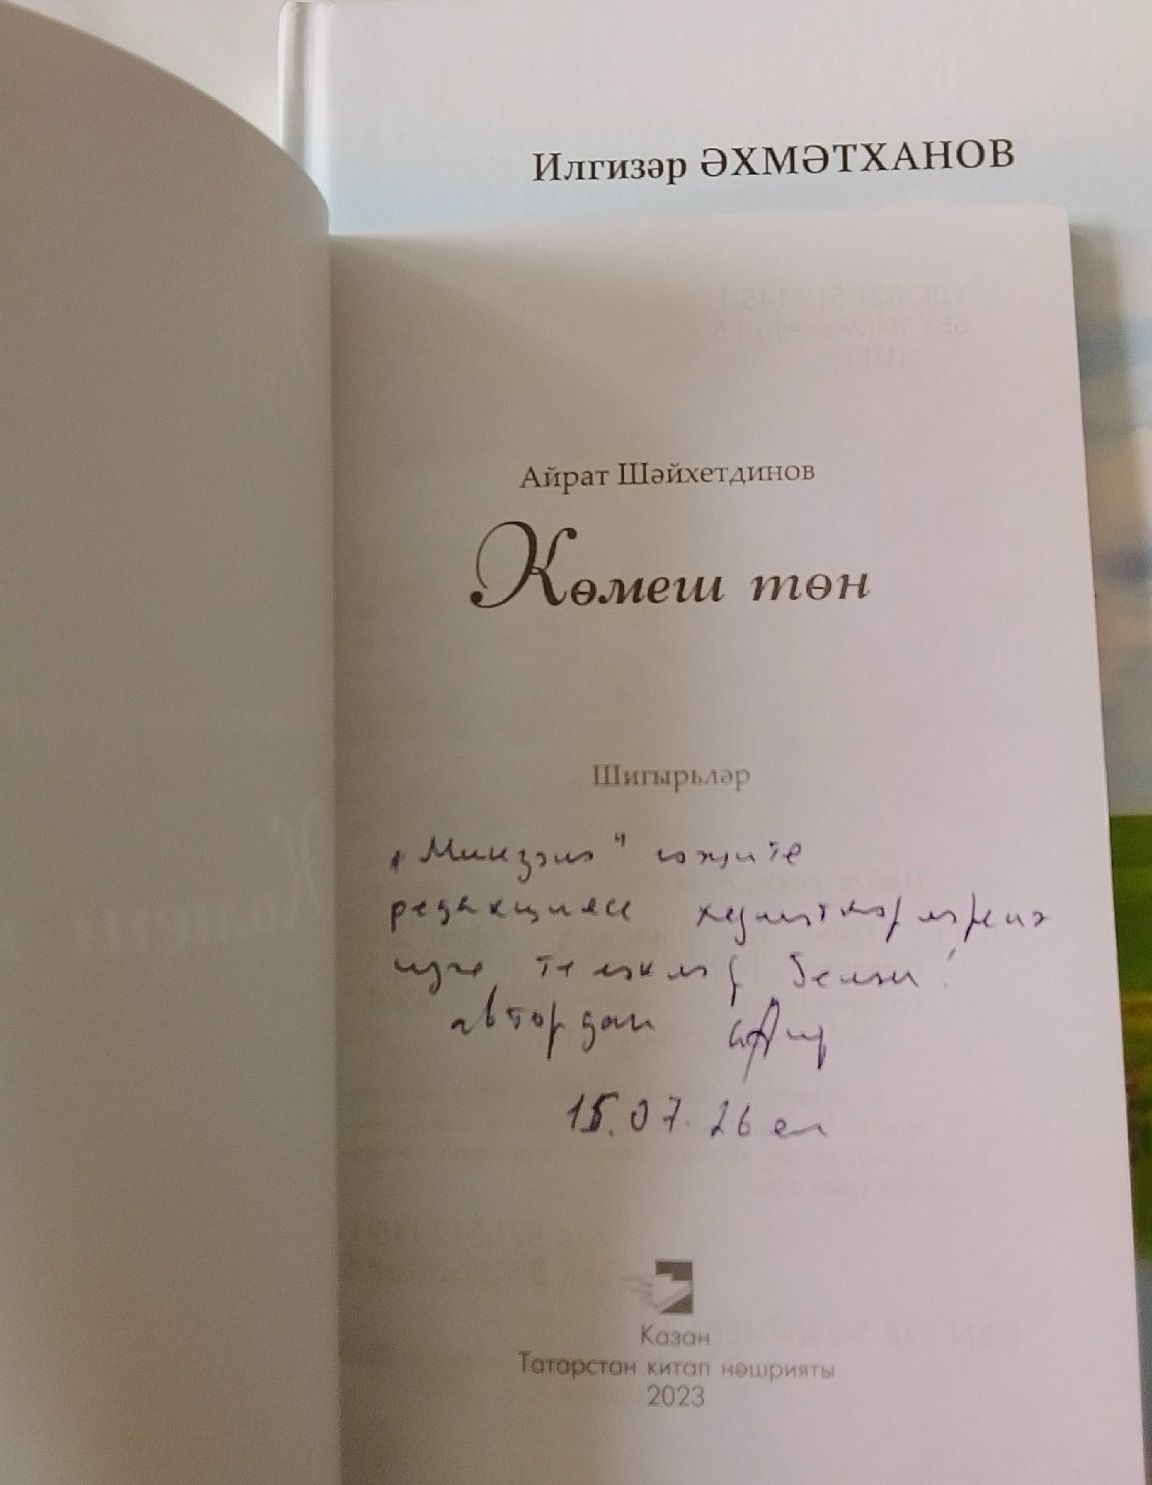 Илгизәр ӘХМӘТХАНОВ
Айрат Шәйхетдинов
Көмеш төн
Шигырьләр
„Минзәлә" гәҗите
редакциясе хезмәткәрләренә
изге теләкләр белән!
автордан
15.07.26 ел
Казан
Татарстан китап нәшрияты
2023